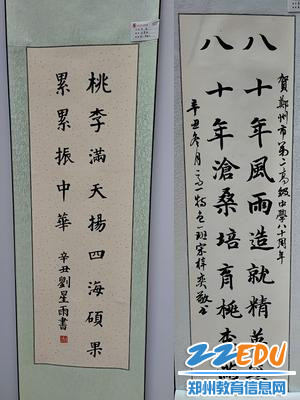 桃李滿天揚四海碩果
累累振中華
辛丑劉星雨書
賀鄭州市第二高級中學八十周年
八十年風雨造就精英
八十年滄桑培育桃李
辛丑冬月高一特色一班宋梓奕敬書
ZZEDU
郑州教育信息网